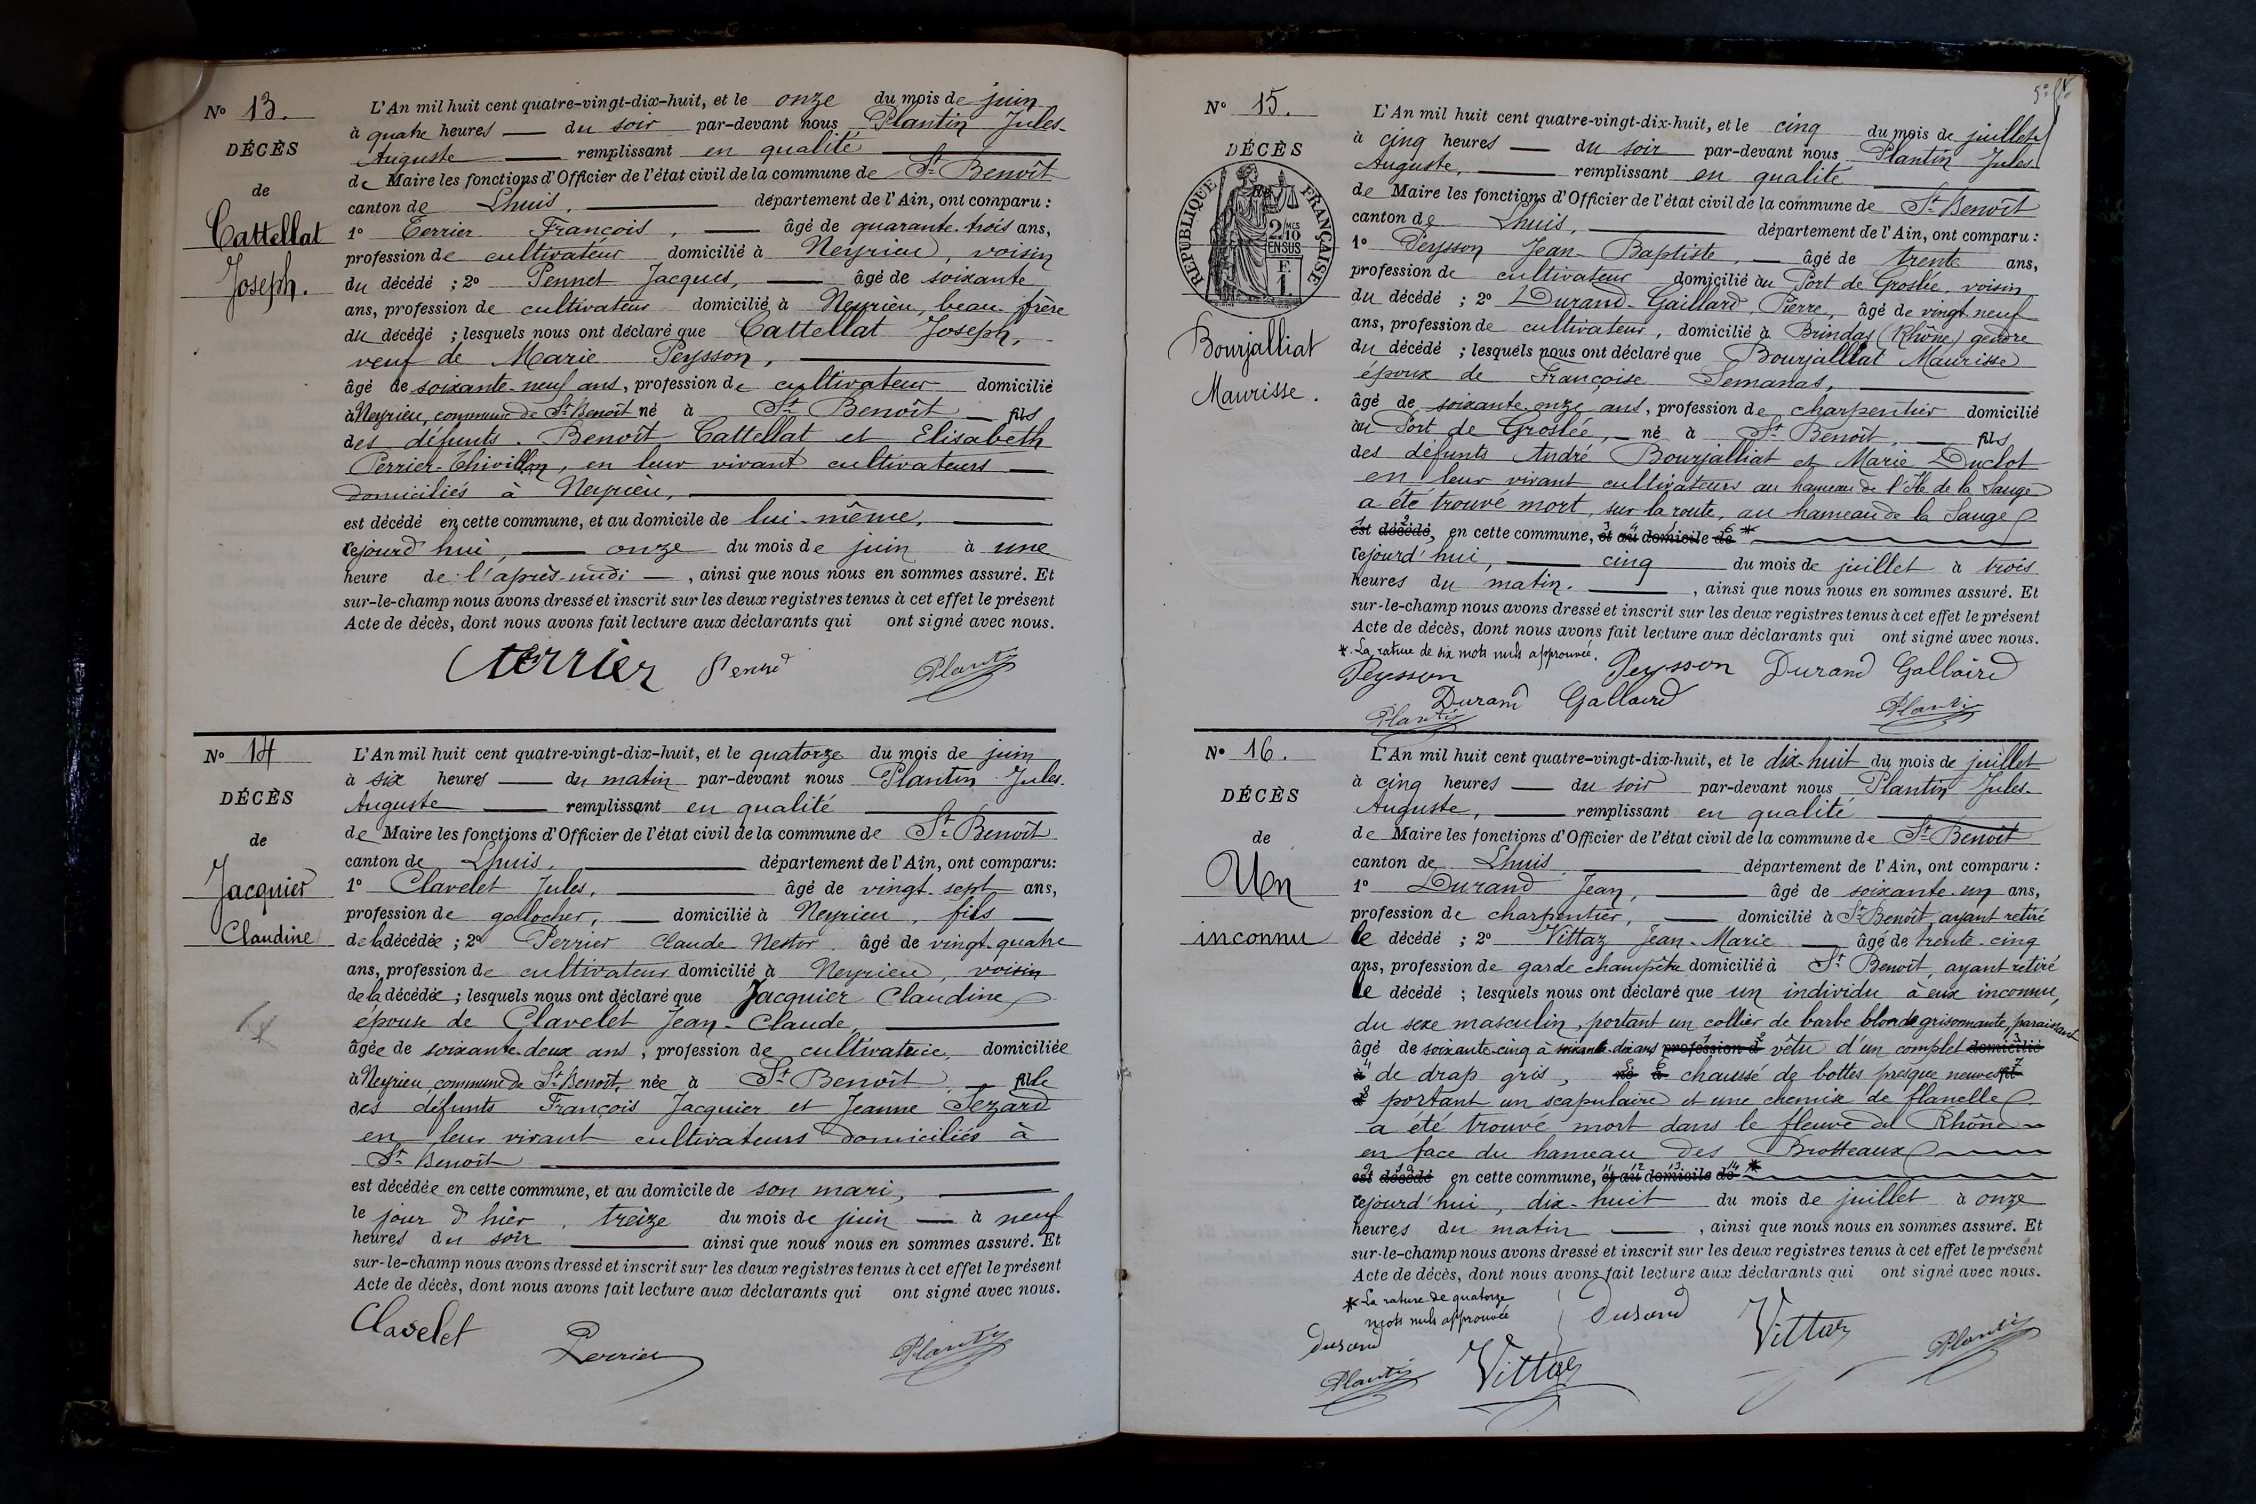 N° 13.
DÉCÈS
de
Cattellat
Joseph.
L'An mil huit cent quatre-vingt-dix-huit, et le onze du mois de juin
à quatre heures du soir par-devant nous Plantin Jules-
Auguste remplissant en qualité
de Maire les fonctions d'Officier de l'état civil de la commune de St Benoît
canton de Lhuis, département de l'Ain, ont comparu :
1° Terrier François, âgé de quarante-trois ans,
profession de cultivateur domicilié à Neyrieu, voisin
du décédé ; 2° Pennet Jacques, âgé de soixante
ans, profession de cultivateur domicilié à Neyrieu, beau-frère
du décédé ; lesquels nous ont déclaré que Cattellat Joseph,
veuf de Marie Peysson,
âgé de soixante-neuf ans, profession de cultivateur domicilié
à Neyrieu, commune de St Benoît né à St Benoît fils
des défunts Benoît Cattellat et Elisabeth
Perrier-Thivillon, en leur vivant cultivateurs
domiciliés à Neyrieu,
est décédé en cette commune, et au domicile de lui-même,
cejourd'hui, onze du mois de juin à une
heure de l'après-midi, ainsi que nous nous en sommes assuré. Et
sur-le-champ nous avons dressé et inscrit sur les deux registres tenus à cet effet le présent
Acte de décès, dont nous avons fait lecture aux déclarants qui ont signé avec nous.
terrier Plantin
N° 14
DÉCÈS
de
Jacquier
Claudine
L'An mil huit cent quatre-vingt-dix-huit, et le quatorze du mois de juin
à six heures du matin par-devant nous Plantin Jules-
Auguste remplissant en qualité
de Maire les fonctions d'Officier de l'état civil de la commune de St Benoît
canton de Lhuis, département de l'Ain, ont comparu :
1° Clavelet Jules, âgé de vingt-sept ans,
profession de galocher, domicilié à Neyrieu, fils
de la décédée ; 2° Perrier Claude Nestor âgé de vingt-quatre
ans, profession de cultivateur domicilié à Neyrieu, voisin
de la décédée ; lesquels nous ont déclaré que Jacquier Claudine
épouse de Clavelet Jean-Claude,
âgée de soixante-deux ans, profession de cultivatrice, domiciliée
à Neyrieu commune de St Benoît, née à St Benoît fille
des défunts François Jacquier et Jeanne Tezard
en leur vivant cultivateurs domiciliés à
St Benoît
est décédée en cette commune, et au domicile de son mari,
le jour d'hier, treize du mois de juin à neuf
heures du soir ainsi que nous nous en sommes assuré. Et
sur-le-champ nous avons dressé et inscrit sur les deux registres tenus à cet effet le présent
Acte de décès, dont nous avons fait lecture aux déclarants qui ont signé avec nous.
Clavelet Perrier Plantin
N° 15.
DÉCÈS
RÉPUBLIQUE FRANÇAISE
2/10 MES
EN SUS
F.
1.
Bourjalliat
Maurisse.
L'An mil huit cent quatre-vingt-dix-huit, et le cinq du mois de juillet
à cinq heures du soir par-devant nous Plantin Jules-
Auguste, remplissant en qualité
de Maire les fonctions d'Officier de l'état civil de la commune de St Benoît
canton de Lhuis, département de l'Ain, ont comparu :
1° Peysson Jean-Baptiste, âgé de trente ans,
profession de cultivateur domicilié au Port de Groslée, voisin
du décédé ; 2° Durand-Gaillard Pierre, âgé de vingt-neuf
ans, profession de cultivateur, domicilié à Brindas (Rhône) gendre
du décédé ; lesquels nous ont déclaré que Bourjalliat Maurisse
époux de Françoise Semanas,
âgé de soixante-onze ans, profession de charpentier domicilié
au Port de Groslée, né à St Benoît, fils
des défunts André Bourjalliat et Marie Duclot
en leur vivant cultivateurs au hameau de l'Ile de la Sauge
a été trouvé mort, sur la route, au hameau de la Sauge
est décédé, en cette commune, et au domicile de *
cejourd'hui, cinq du mois de juillet à trois
heures du matin, ainsi que nous nous en sommes assuré. Et
sur-le-champ nous avons dressé et inscrit sur les deux registres tenus à cet effet le présent
Acte de décès, dont nous avons fait lecture aux déclarants qui ont signé avec nous.
* La rature de six mots nuls approuvée.
Peysson Peysson Durand Gallaird
Durand Gallaird
Plantin Plantin
N° 16.
DÉCÈS
de
Un
inconnu
L'An mil huit cent quatre-vingt-dix-huit, et le dix-huit du mois de juillet
à cinq heures du soir par-devant nous Plantin Jules-
Auguste, remplissant en qualité
de Maire les fonctions d'Officier de l'état civil de la commune de St Benoît
canton de Lhuis département de l'Ain, ont comparu :
1° Durand Jean, âgé de soixante-un ans,
profession de charpentier, domicilié à St Benoît, ayant retiré
le décédé ; 2° Vittaz Jean-Marie âgé de trente-cinq
ans, profession de garde champêtre domicilié à St Benoît, ayant retiré
le décédé ; lesquels nous ont déclaré que un individu à eux inconnu,
du sexe masculin, portant un collier de barbe blonde grisonnante, paraissant
âgé de soixante-cinq à soixante-dix ans profession d vêtu d'un complet domicilié
à de drap gris, né à chaussé de bottes presque neuves fil
d portant un scapulaire et une chemise de flanelle
a été trouvé mort dans le fleuve du Rhône
en face du hameau des Brotteaux
est décédé en cette commune, et au domicile de *
cejourd'hui, dix-huit du mois de juillet à onze
heures du matin, ainsi que nous nous en sommes assuré. Et
sur-le-champ nous avons dressé et inscrit sur les deux registres tenus à cet effet le présent
Acte de décès, dont nous avons fait lecture aux déclarants qui ont signé avec nous.
* La rature de quatorze
mots nuls approuvée
durand Vittaz Plantin
durand
Plantin Vittaz